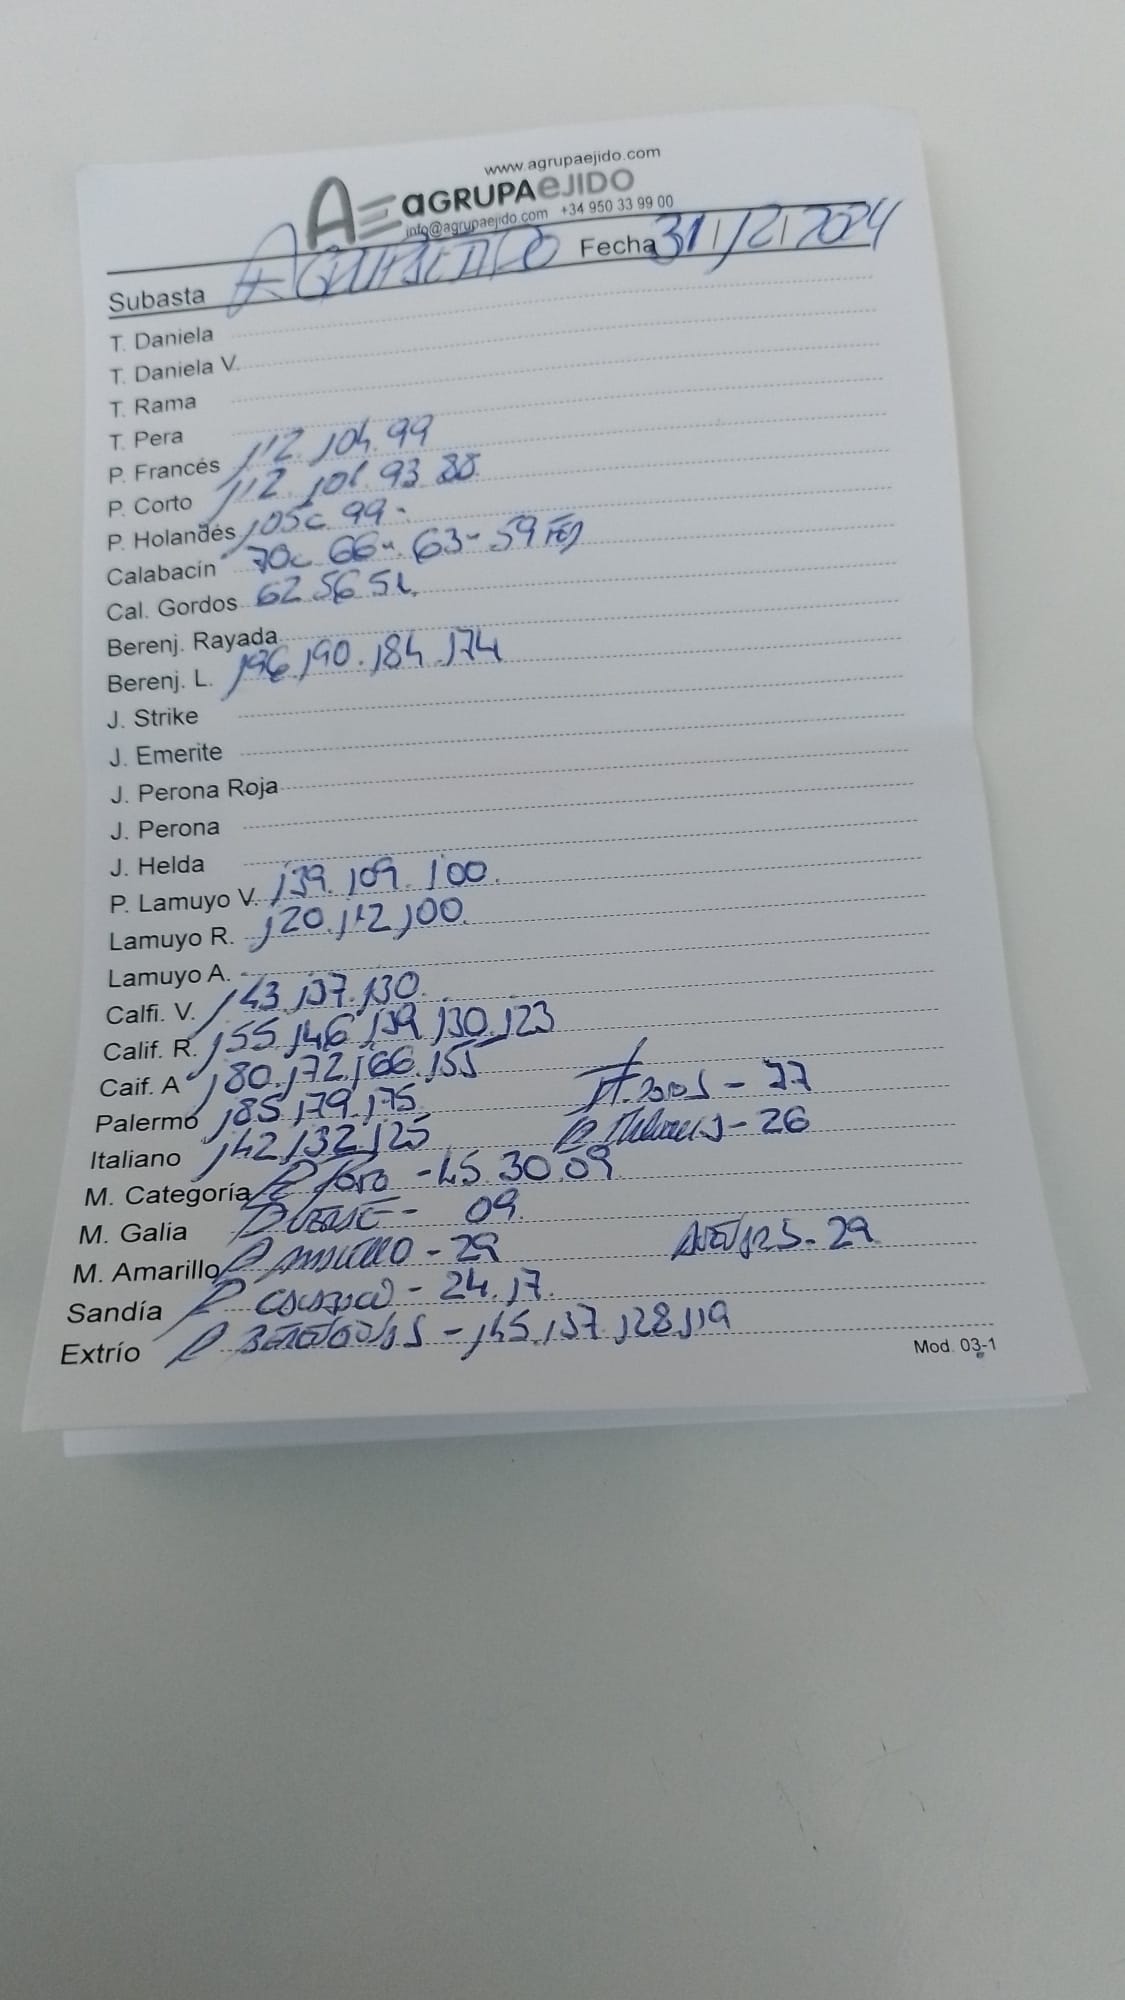 www.agrupaejido.com
AE aGRUPAeJIDO
info@agrupaejido.com +34 950 33 99 00
Subasta AGRUPAEJIDO Fecha 31/12/2024
T. Daniela
T. Daniela V.
T. Rama
T. Pera
P. Francés 112. 104. 99
P. Corto 112. 101. 93. 88.
P. Holandés 105c 99-
Calabacín 70c 66-. 63- 59
Cal. Gordos 62 56 51.
Berenj. Rayada
Berenj. L. 196. 190. 184. 174
J. Strike
J. Emerite
J. Perona Roja
J. Perona
J. Helda
P. Lamuyo V. 139. 109. 100.
Lamuyo R. 120. 112 100.
Lamuyo A.
Calfi. V. 143. 137. 130.
Calif. R. 155 146 139 130. 123
Caif. A 180. 172. 166. 155
Palermo 185, 179. 175. - 77
Italiano 142, 132, 125 - 26
M. Categoría P - 45. 30. 09.
M. Galia - 09.
M. Amarillo P AMARILLO - 29 - 29
Sandía P - 24. 17.
Extrío P BERENJENAS - 145. 137 128 119
Mod. 03-1